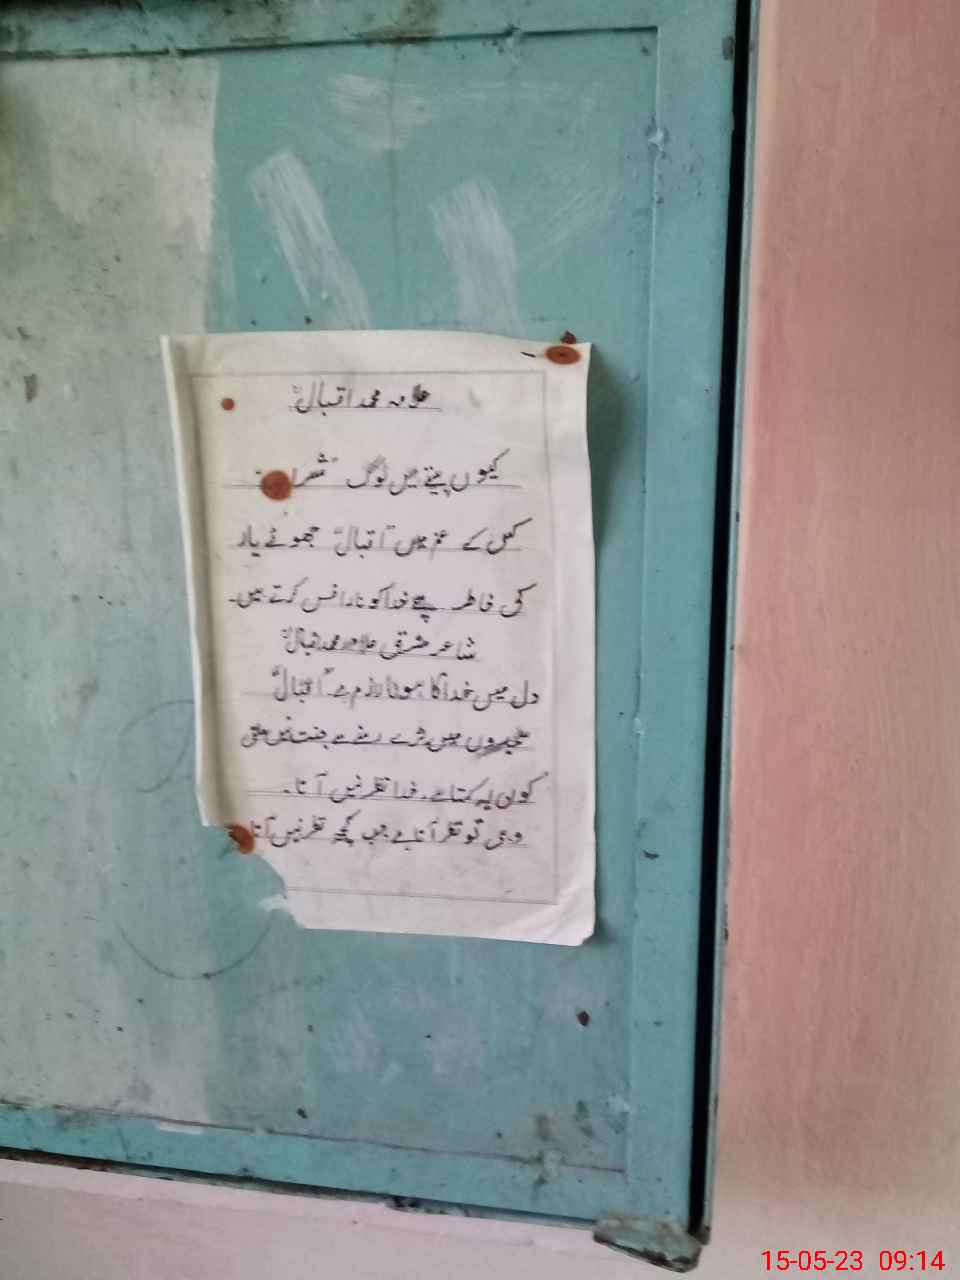 علامہ محمد اقبالؒ
کیوں پیتے ہیں لوگ "شراب"
کس کے غم میں "اقبال" جھوٹے یار
کی خاطر سچے خدا کو ناراض کرتے ہیں۔
شاعر مشرقی علامہ محمد اقبالؒ
دل میں خدا کا ہونا لازم ہے "اقبال"
سجدوں میں پڑے رہنے سے جنت نہیں ملتی
کون یہ کہتا ہے۔ خدا نظر نہیں آتا۔
وہی تو نظر آتا ہے جب کچھ نظر نہیں آتا
15-05-23 09:14